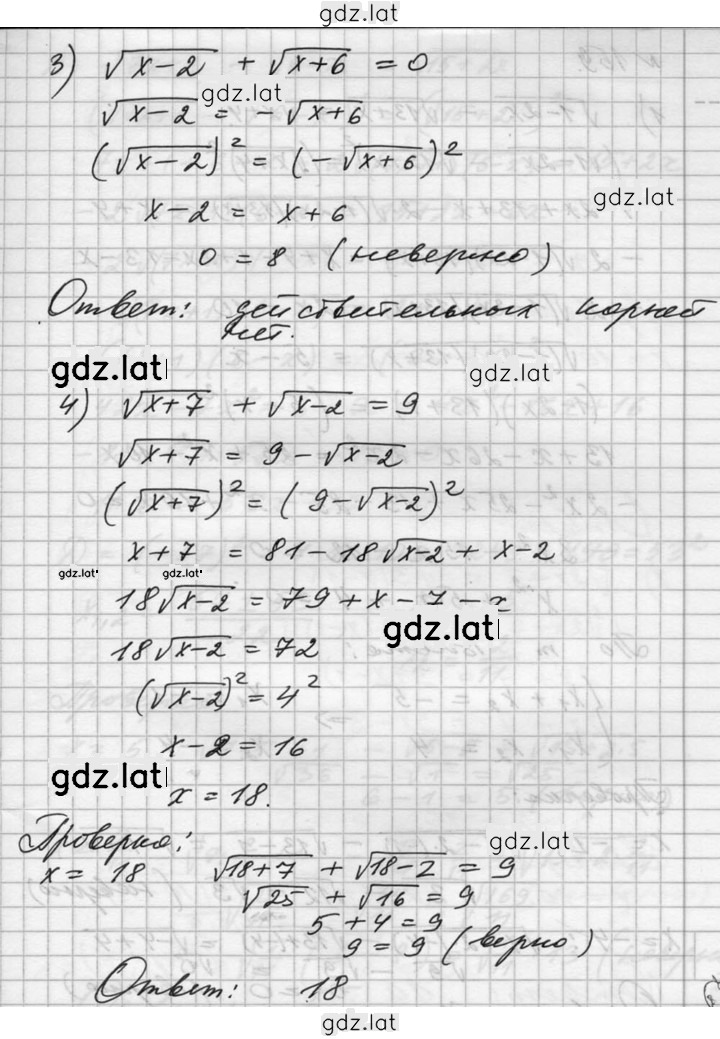 gdz.lat
3) √(x-2) + √(x+6) = 0
gdz.lat
√(x-2) = -√(x+6)
(√(x-2))² = (-√(x+6))²
gdz.lat
x-2 = x+6
0 = 8 (неверно)
Ответ: действительных корней
нет.
gdz.lat
gdz.lat
4) √(x+7) + √(x-2) = 9
√(x+7) = 9-√(x-2)
(√(x+7))² = (9-√(x-2))²
x+7 = 81-18√(x-2) + x-2
gdz.lat
gdz.lat
18√(x-2) = 79+x-7-x
gdz.lat
18√(x-2) = 72
(√(x-2))² = 4²
x-2 = 16
gdz.lat
x = 18.
Проверка:
gdz.lat
x = 18 √(18+7) + √(18-2) = 9
√25 + √16 = 9
5+4 = 9
9 = 9 (верно)
Ответ: 18
gdz.lat